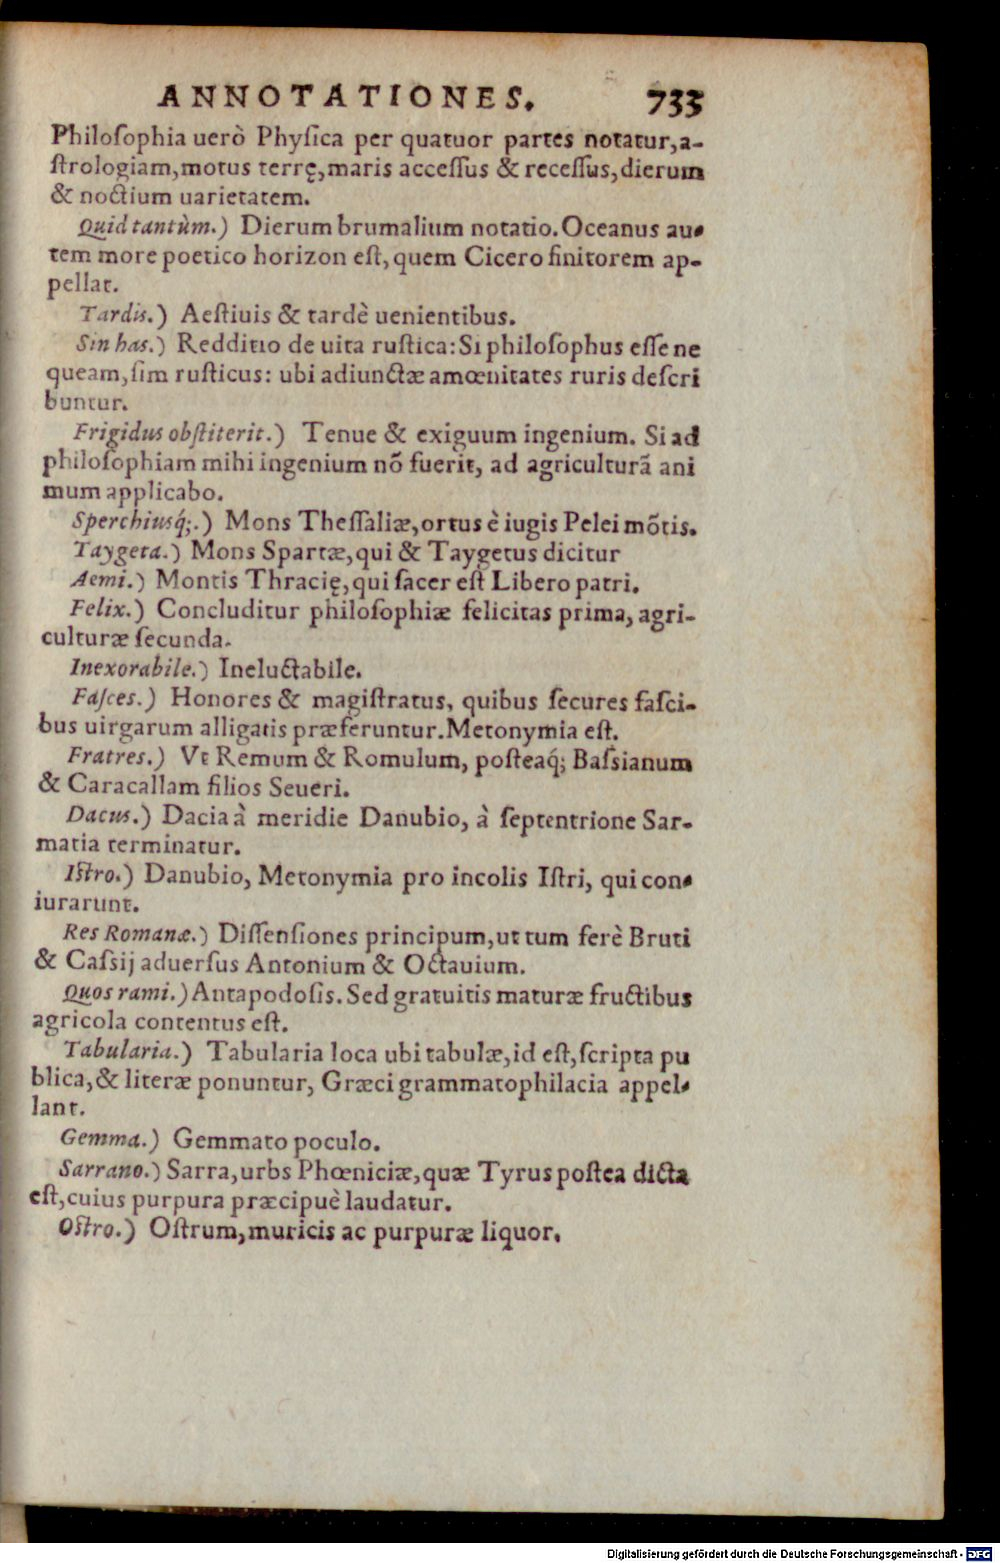 ANNOTATIONES. 733
Philoſophia uerò Phyſica per quatuor partes notatur,a-
ſtrologiam,motus terrę,maris acceſſus & receſſus,dierum
& noctium uarietatem.
Quid tantùm.) Dierum brumalium notatio.Oceanus au-
tem more poetico horizon eſt,quem Cicero finitorem ap-
pellat.
Tardis.) Aeſtiuis & tardè uenientibus.
Sin has.) Redditio de uita ruſtica:Si philoſophus eſſe ne
queam,ſim ruſticus: ubi adiunctæ amœnitates ruris deſcri
buntur.
Frigidus obſtiterit.) Tenue & exiguum ingenium. Si ad
philoſophiam mihi ingenium nõ fuerit, ad agriculturã ani
mum applicabo.
Sperchiusq́;.) Mons Theſſaliæ,ortus è iugis Pelei mõtis.
Taygeta.) Mons Spartæ,qui & Taygetus dicitur
Aemi.) Montis Thracię,qui ſacer eſt Libero patri.
Felix.) Concluditur philoſophiæ felicitas prima, agri-
culturæ ſecunda.
Inexorabile.) Ineluctabile.
Faſces.) Honores & magiſtratus, quibus ſecures faſci-
bus uirgarum alligatis præferuntur.Metonymia eſt.
Fratres.) Vt Remum & Romulum, poſteaq́; Baſsianum
& Caracallam filios Seueri.
Dacus.) Dacia à meridie Danubio, à ſeptentrione Sar-
matia terminatur.
Iſtro.) Danubio, Metonymia pro incolis Iſtri, qui con-
iurarunt.
Res Romanæ.) Diſſenſiones principum,ut tum ferè Bruti
& Caſsij aduerſus Antonium & Octauium.
Quos rami.) Antapodoſis.Sed gratuitis maturæ fructibus
agricola contentus eſt.
Tabularia.) Tabularia loca ubi tabulæ,id eſt,ſcripta pu
blica,& literæ ponuntur, Græci grammatophilacia appel-
lant.
Gemma.) Gemmato poculo.
Sarrano.) Sarra,urbs Phœniciæ,quæ Tyrus poſtea dicta
eſt,cuius purpura præcipuè laudatur.
Oſtro.) Oſtrum,muricis ac purpuræ liquor.
Digitalisierung gefördert durch die Deutsche Forschungsgemeinschaft - DFG